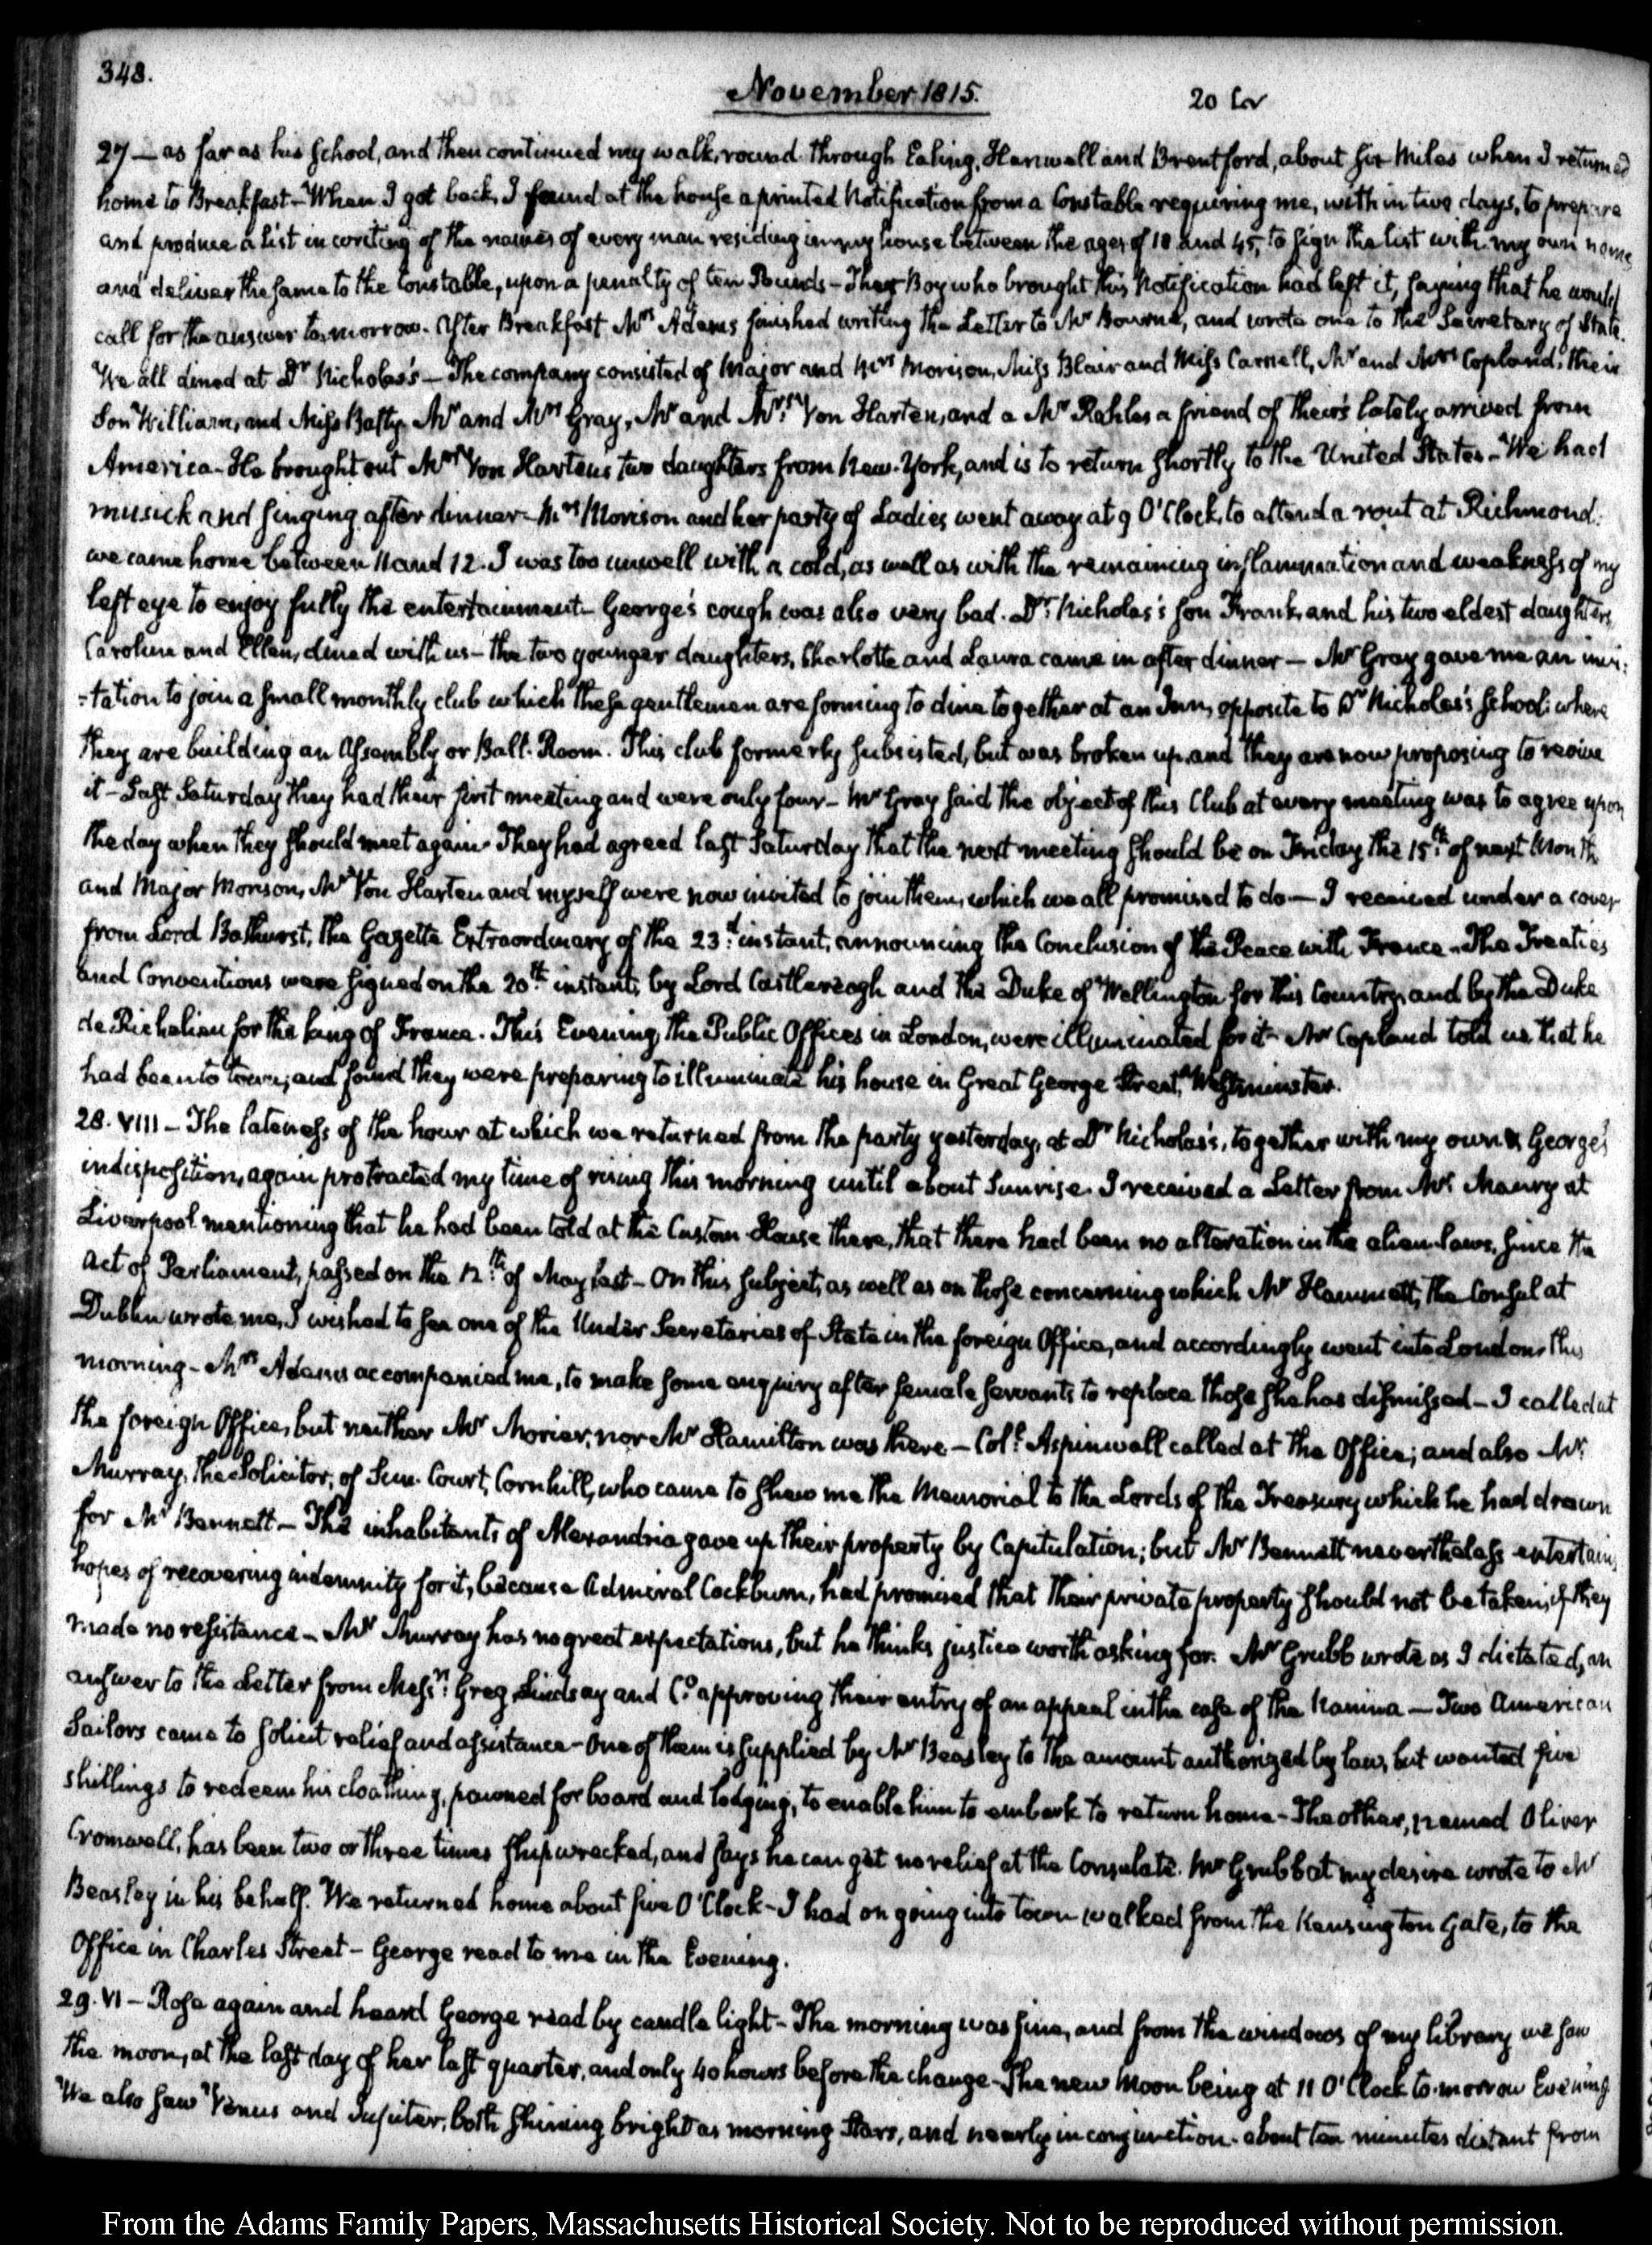 348.
November 1815.
20
27 — as far as his School, and then continued my walk, round through Ealing, Hanwell and Brentford, about six Miles when I returned
home to Breakfast — When I got back, I found at the house a printed Notification from a Constable requiring me, within two days, to prepare
and produce a list in writing of the names of every man residing in my house between the ages of 18 and 45, to sign the list with my own name
and deliver the same to the Constable, upon a penalty of ten Pounds — The Boy who brought this Notification had left it, saying that he would
call for the answer to-morrow. After Breakfast Mrs Adams finished writing the Letter to Mr Bourne, and wrote one to the Secretary of State.
We all dined at Dr Nicholas's — The company consisted of Major and Mrs Morison, Miss Blair and Miss Carnell, Mr and Mrs Copland, their
Son William, and Miss Batty, Mr and Mrs Gray, Mr and Mrs Von Harten, and a Mr Rahles a friend of theirs lately arrived from
America — He brought out Mrs Von Harten's two daughters from New-York, and is to return shortly to the United States — We had
musick and singing after dinner — Mrs Morison and her party of Ladies went away at 9 O'Clock, to attend a rout at Richmond.
we came home between 11 and 12. I was too unwell with a cold, as well as with the remaining inflammation and weakness of my
left eye to enjoy fully the entertainment — George's cough was also very bad. Dr Nicholas's son Frank, and his two eldest daughters
Caroline and Ellen, dined with us — the two younger daughters, Charlotte and Laura came in after dinner — Mr Gray gave me an invi-
-tation to join a small monthly club which these gentlemen are forming to dine together at an Inn, opposite to Dr Nicholas's School: where
they are building an Assembly or Ball-Room. This club formerly subsisted, but was broken up, and they are now proposing to revive
it — Last Saturday they had their first meeting and were only four — Mr Gray said the object of this Club at every meeting was to agree upon
the day when they should meet again — They had agreed last Saturday that the next meeting should be on Friday the 15th of next Month
and Major Morison, Mr Von Harten and myself were now invited to join them, which we all promised to do — I received under a cover
from Lord Bathurst, the Gazette Extraordinary of the 23d instant, announcing the Conclusion of the Peace with France — The Treaties
and Conventions were signed on the 20th instant, by Lord Castlereagh and the Duke of Wellington for this Country, and by the Duke
de Richelieu for the king of France. This Evening, the Public Offices in London, were illuminated for it — Mr Copland told us that he
had been to town, and found they were preparing to illuminate his house in Great George Street, Westminster.
28. VIII — The lateness of the hour at which we returned from the party yesterday, at Dr Nicholas's, together with my own & George's
indisposition, again protracted my time of rising this morning until about Sunrise. I received a Letter from Mr Maury at
Liverpool mentioning that he had been told at the Custom-House there, that there had been no alteration in the alien-laws, since the
Act of Parliament, passed on the 12th of May last — On this subject, as well as on those concerning which Mr Hammett, the Consul at
Dublin wrote me, I wished to see one of the Under Secretaries of State in the foreign Office, and accordingly went into London this
morning — Mrs Adams accompanied me, to make some enquiry after female servants to replace those she has dismissed — I called at
the foreign Office, but neither Mr Morier, nor Mr Hamilton was there — Coll Aspinwall called at the Office; and also Mr
Murray, the Solicitor, of Sun Court, Cornhill, who came to shew me the Memorial to the Lords of the Treasury which he had drawn
for Mr Bennett — The inhabitants of Alexandria gave up their property by Capitulation; but Mr Bennett nevertheless entertains
hopes of recovering indemnity for it, because Admiral Cockburn, had promised that their private property should not be taken, if they
made no resistance — Mr Murray has no great expectations, but he thinks justice worth asking for. Mr Grubb wrote as I dictated, an
answer to the Letter from Messrs Greg Lindsay and Co approving their entry of an appeal in the case of the Nanina — Two American
Sailors came to solicit relief and assistance — One of them is supplied by Mr Beasley to the amount authorized by law, but wanted five
shillings to redeem his cloathing, pawned for board and lodging, to enable him to embark to return home — The other, named Oliver
Cromwell, has been two or three times shipwrecked, and says he can get no relief at the Consulate. Mr Grubb at my desire wrote to Mr
Beasley in his behalf. We returned home about five O'Clock — I had on going into town walked from the Kensington Gate, to the
Office in Charles Street — George read to me in the Evening.
29. VI — Rose again and heard George read by candle light — The morning was fine, and from the windows of my library we saw
the moon, at the last day of her last quarter, and only 40 hours before the change — The new Moon being at 11 O'Clock to-morrow Evening
We also saw Venus and Jupiter, both shining bright as morning Stars, and nearly in conjunction — about ten minutes distant from
From the Adams Family Papers, Massachusetts Historical Society. Not to be reproduced without permission.